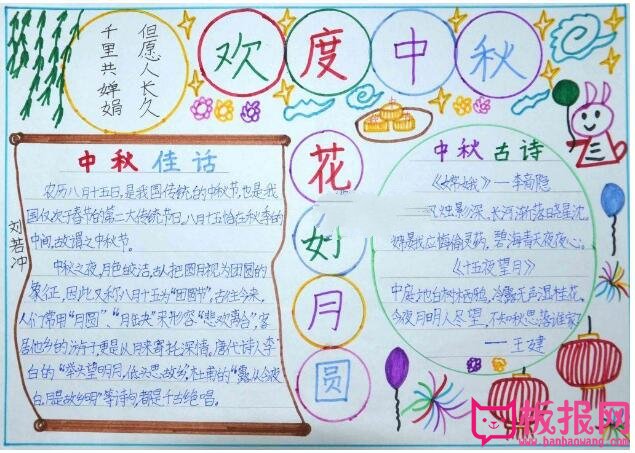 但愿人长久
千里共婵娟
欢度中秋
中秋佳话
农历八月十五日,是我国传统的中秋节,也是我
国仅次于春节的第二大传统节日。八月十五恰在秋季的
中间,故谓之中秋节。
中秋之夜,月色皎洁,古人把圆月视为团圆的
象征,因此,又称八月十五为“团圆节”。古往今来,
人们常用“月圆”、“月缺”来形容“悲欢离合”,客
居他乡的游子,更是以月来寄托深情。唐代诗人李
白的“举头望明月,低头思故乡”,杜甫的“露从今夜
白,月是故乡明”等诗句,都是千古绝唱。
刘若冲
花好月圆
中秋古诗
《嫦娥》——李商隐
烛影深,长河渐落晓星沈。
嫦娥应悔偷灵药,碧海青天夜夜心。
《十五夜望月》
中庭地白树栖鸦,冷露无声湿桂花。
今夜月明人尽望,不知秋思落谁家?
——王建
板报网
www.banbaowang.com